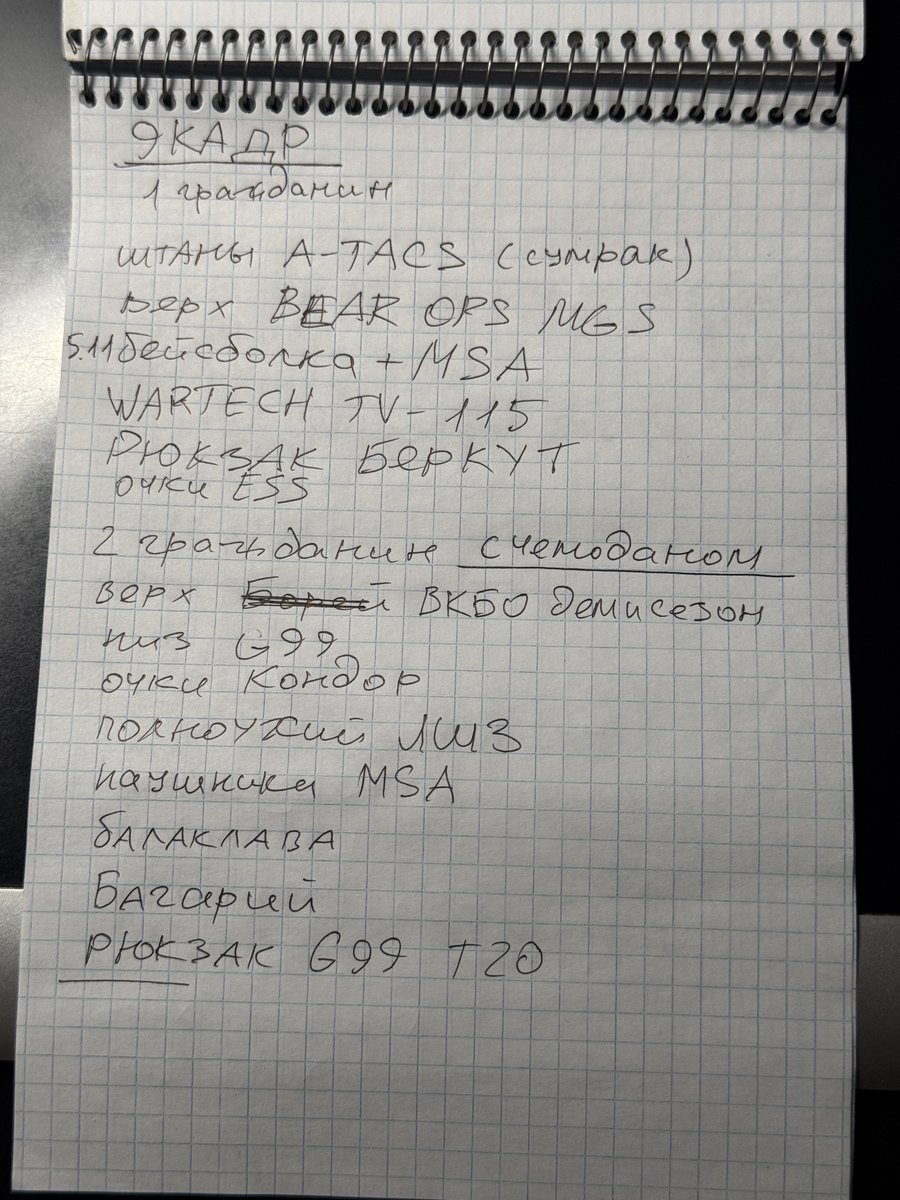 9КАДР
1 гражданин
штаны A-TACS (сумрак)
верх BEAR OPS MGS
5.11 бейсболка + MSA
WARTECH TV-115
Рюкзак Беркут
очки ESS
2 гражданин с чемоданом
верх Борей ВКБО демисезон
низ G99
очки Кондор
полноухий ЛШЗ
наушника MSA
балаклава
Багарий
рюкзак G99 T20